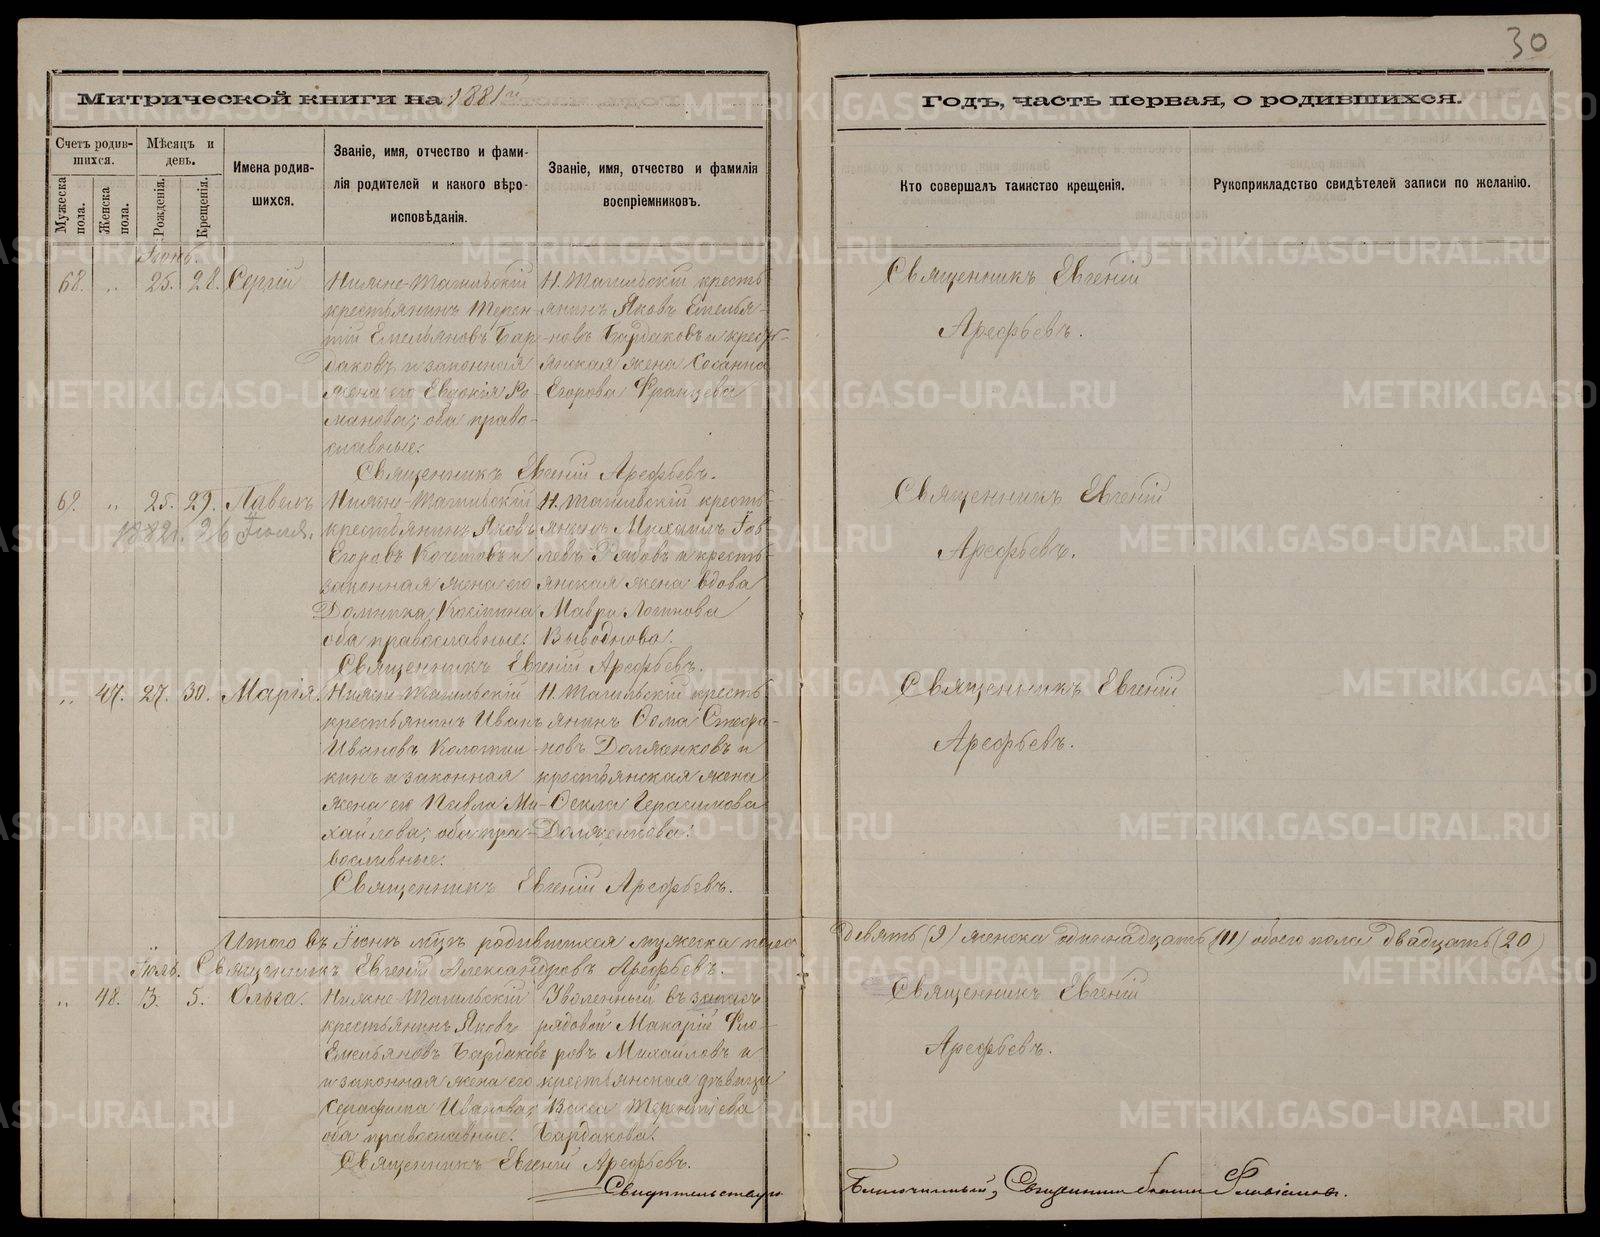 30
Митрической книги на 1881й Годъ, часть первая, о родившихся.
Счетъ родив-
шихся.
Мужеска
пола.
Женска
пола.
Мѣсяцъ и
день.
Рожденія.
Крещенія.
Имена родив-
шихся.
Званіе, имя, отчество и фами-
лія родителей и какого вѣро-
исповѣданія.
Званіе, имя, отчество и фамилія
воспріемниковъ.
Кто совершалъ таинство крещенія.
Рукоприкладство свидѣтелей записи по желанію.
Іюнь.
68. „ 25. 28. Сергій
Нижне-Тагильскій
крестьянинъ Терен-
тій Емельяновъ Бар-
даковъ и законная
жена его Евдокія Ро-
манова; оба право-
славные.
Н. Тагильскій кресть-
янинъ Яковъ Емелья-
новъ Бардаковъ и кресть-
янская жена Сосанна
Егорова Францева
Священникъ Евгеній Арефьевъ.
Священникъ Евгеній
Арефьевъ.
69. „ 25. 29. Павелъ
1882г. 26 Іюля.
Нижне-Тагильскій
крестьянинъ Яковъ
Егоровъ Кочетовъ и
законная жена его
Домника Косьмина
оба православные.
Н. Тагильскій кресть-
янинъ Михаилъ Іов-
левъ Рябовъ и кресть-
янская жена вдова
Мавра Логинова
Выводнова.
Священникъ Евгеній Арефьевъ.
Священникъ Евгеній
Арефьевъ.
„ 47. 27. 30. Марія.
Нижне-Тагильскій
крестьянинъ Иванъ
Ивановъ Колотил-
кинъ и законная
жена его Павла Ми-
хайлова; оба пра-
вославные.
Н. Тагильскій кресть-
янинъ Ѳома Стефа-
новъ Долженковъ и
крестьянская жена
Ѳекла Герасимова
Долженкова.
Священникъ Евгеній Арефьевъ.
Священникъ Евгеній
Арефьевъ.
Итого въ Іюнѣ м̃цѣ родившихся мужеска пола девять (9) женска одиннадцать (11) обоего пола двадцать (20)
Іюль. Священникъ Евгеній Александровъ Арефьевъ.
„ 48. 3. 5. Ольга.
Нижне-Тагильскій
крестьянинъ Яковъ
Емельяновъ Бардаковъ
и законная жена его
Серафима Иванова;
оба православные.
Уволенный въ запасъ
рядовой Макарій Фло-
ровъ Михайловъ и
крестьянская дѣвица
Васса Терентіева
Бардакова.
Священникъ Евгеній Арефьевъ.
Священникъ Евгеній
Арефьевъ.
Свидѣтельствую Благочинный, Священникъ Флавіановъ.
METRIKI.GASO-URAL.RU